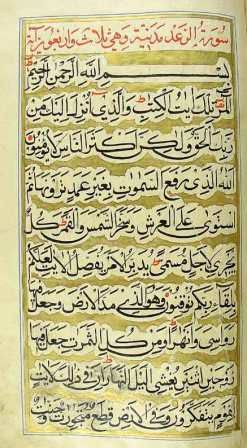 سورة الرعد مدنية وهي ثلاث واربعون آية
بسم الله الرحمن الرحيم
المر تلك ايت الكتب والذي انزل اليك من
ربك الحق ولكن اكثر الناس لا يؤمنون
الله الذي رفع السموت بغير عمد ترونها ثم
استوى على العرش وسخر الشمس والقمر كل
يجري لاجل مسمى يدبر الامر يفصل الايت لعلكم
بلقاء ربكم توقنون وهو الذي مد الارض وجعل فيها
رواسي وانهرا ومن كل الثمرت جعل فيها
زوجين اثنين يغشي اليل النهار ان في ذلك لايت
لقوم يتفكرون وفي الارض قطع متجورت وجنت